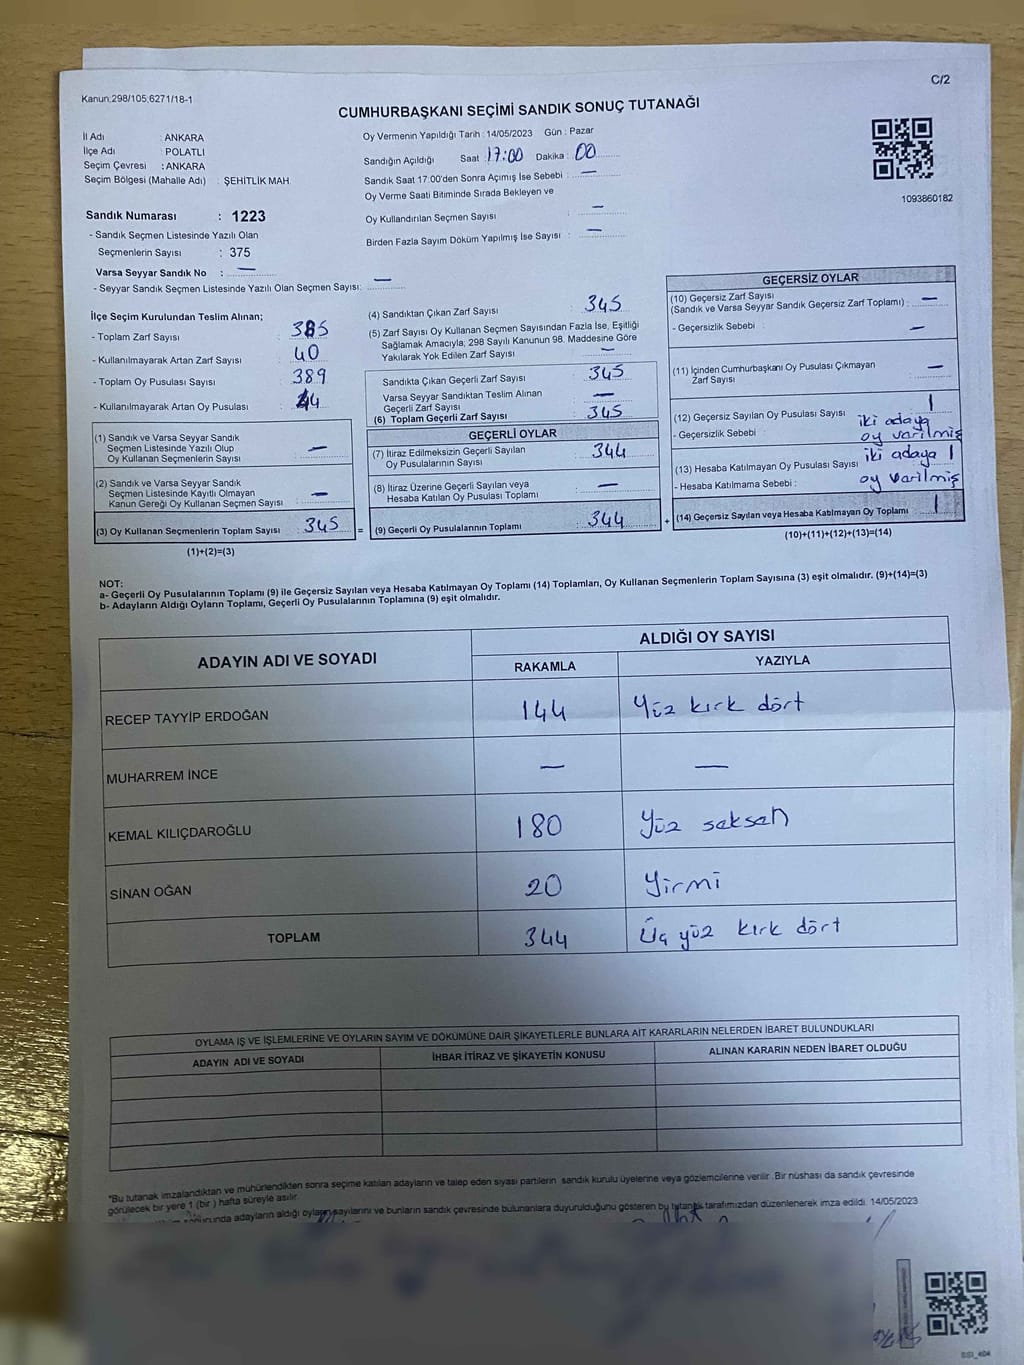 C/2
Kanun:298/105,6271/18-1
CUMHURBAŞKANI SEÇİMİ SANDIK SONUÇ TUTANAĞI
İl Adı : ANKARA
İlçe Adı : POLATLI
Seçim Çevresi : ANKARA
Seçim Bölgesi (Mahalle Adı) : ŞEHİTLİK MAH.
Oy Vermenin Yapıldığı Tarih : 14/05/2023 Gün : Pazar
Sandığın Açıldığı Saat : 17:00 Dakika : 00
Sandık Saat 17:00'den Sonra Açımış İse Sebebi : —
Oy Verme Saati Bitiminde Sırada Bekleyen ve
Oy Kullandırılan Seçmen Sayısı : —
Birden Fazla Sayım Döküm Yapılmış İse Sayısı : —
1093860182
Sandık Numarası : 1223
- Sandık Seçmen Listesinde Yazılı Olan
Seçmenlerin Sayısı : 375
Varsa Seyyar Sandık No : —
- Seyyar Sandık Seçmen Listesinde Yazılı Olan Seçmen Sayısı: —
İlçe Seçim Kurulundan Teslim Alınan;
- Toplam Zarf Sayısı : 385
- Kullanılmayarak Artan Zarf Sayısı : 40
- Toplam Oy Pusulası Sayısı : 389
- Kullanılmayarak Artan Oy Pusulası : 44
(1) Sandık ve Varsa Seyyar Sandık
Seçmen Listesinde Yazılı Olup
Oy Kullanan Seçmenlerin Sayısı : —
(2) Sandık ve Varsa Seyyar Sandık
Seçmen Listesinde Kayıtlı Olmayan
Kanun Gereği Oy Kullanan Seçmen Sayısı : —
(3) Oy Kullanan Seçmenlerin Toplam Sayısı : 345 =
(1)+(2)=(3)
(4) Sandıktan Çıkan Zarf Sayısı : 345
(5) Zarf Sayısı Oy Kullanan Seçmen Sayısından Fazla İse, Eşitliği
Sağlamak Amacıyla; 298 Sayılı Kanunun 98. Maddesine Göre
Yakılarak Yok Edilen Zarf Sayısı : —
Sandıkta Çıkan Geçerli Zarf Sayısı : 345
Varsa Seyyar Sandıktan Teslim Alınan
Geçerli Zarf Sayısı : —
(6) Toplam Geçerli Zarf Sayısı : 345
GEÇERLİ OYLAR
(7) İtiraz Edilmeksizin Geçerli Sayılan
Oy Pusulalarının Sayısı : 344
(8) İtiraz Üzerine Geçerli Sayılan veya
Hesaba Katılan Oy Pusulası Toplamı : —
(9) Geçerli Oy Pusulalarının Toplamı : 344 +
GEÇERSİZ OYLAR
(10) Geçersiz Zarf Sayısı
(Sandık ve Varsa Seyyar Sandık Geçersiz Zarf Toplamı) : —
- Geçersizlik Sebebi : —
(11) İçinden Cumhurbaşkanı Oy Pusulası Çıkmayan
Zarf Sayısı : —
(12) Geçersiz Sayılan Oy Pusulası Sayısı : 1
- Geçersizlik Sebebi : iki adaya
oy varilmiş
(13) Hesaba Katılmayan Oy Pusulası Sayısı : iki adaya 1
- Hesaba Katılmama Sebebi : oy varilmiş
(14) Geçersiz Sayılan veya Hesaba Katılmayan Oy Toplamı : 1
(10)+(11)+(12)+(13)=(14)
NOT:
a- Geçerli Oy Pusulalarının Toplamı (9) ile Geçersiz Sayılan veya Hesaba Katılmayan Oy Toplamı (14) Toplamları, Oy Kullanan Seçmenlerin Toplam Sayısına (3) eşit olmalıdır. (9)+(14)=(3)
b- Adayların Aldığı Oyların Toplamı, Geçerli Oy Pusulalarının Toplamına (9) eşit olmalıdır.
ADAYIN ADI VE SOYADI ALDIĞI OY SAYISI
RAKAMLA YAZIYLA
RECEP TAYYİP ERDOĞAN 144 Yüz kırk dört
MUHARREM İNCE — —
KEMAL KILIÇDAROĞLU 180 Yüz seksen
SİNAN OĞAN 20 Yirmi
TOPLAM 344 Üç yüz kırk dört
OYLAMA İŞ VE İŞLEMLERİNE VE OYLARIN SAYIM VE DÖKÜMÜNE DAİR ŞİKAYETLERLE BUNLARA AİT KARARLARIN NELERDEN İBARET BULUNDUKLARI
ADAYIN ADI VE SOYADI İHBAR İTİRAZ VE ŞİKAYETİN KONUSU ALINAN KARARIN NEDEN İBARET OLDUĞU
*Bu tutanak imzalandıktan ve mühürlendikten sonra seçime katılan adayların ve talep eden siyasi partilerin sandık kurulu üyelerine veya gözlemcilerine verilir. Bir nüshası da sandık çevresinde
görülecek bir yere 1 (bir) hafta süreyle asılır.
adayların aldığı oyların sayılarını ve bunların sandık çevresinde bulunanlara duyurulduğunu gösteren bu tutanak tarafımızdan düzenlenerek imza edildi. 14/05/2023